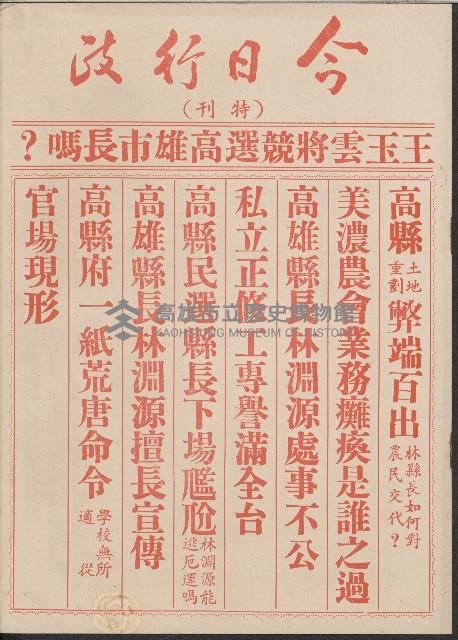 今日行政
（特刊）
王玉雲將競選高雄市長嗎？
高縣土地重劃弊端百出林縣長如何對農民交代？
美濃農會業務癱瘓是誰之過
高雄縣長林淵源處事不公
私立正修工專譽滿全台
高縣民選縣長下場尷尬林淵源能逃厄運嗎
高雄縣長林淵源擅長宣傳
高縣府一紙荒唐命令學校無所適從
官場現形
高雄市立歷史博物館
KAOHSIUNG MUSEUM OF HISTORY